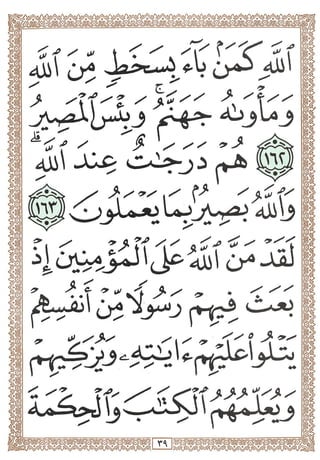 ٱللَّهِ كَمَنۢ بَآءَ بِسَخَطٖ مِّنَ ٱللَّهِ
وَمَأۡوَىٰهُ جَهَنَّمُۖ وَبِئۡسَ ٱلۡمَصِيرُ
١٦٢ هُمۡ دَرَجَٰتٌ عِندَ ٱللَّهِۗ
وَٱللَّهُ بَصِيرُۢ بِمَا يَعۡمَلُونَ ١٦٣
لَقَدۡ مَنَّ ٱللَّهُ عَلَى ٱلۡمُؤۡمِنِينَ إِذۡ
بَعَثَ فِيهِمۡ رَسُولٗا مِّنۡ أَنفُسِهِمۡ
يَتۡلُواْ عَلَيۡهِمۡ ءَايَٰتِهِۦ وَيُزَكِّيهِمۡ
وَيُعَلِّمُهُمُ ٱلۡكِتَٰبَ وَٱلۡحِكۡمَةَ
٣٩